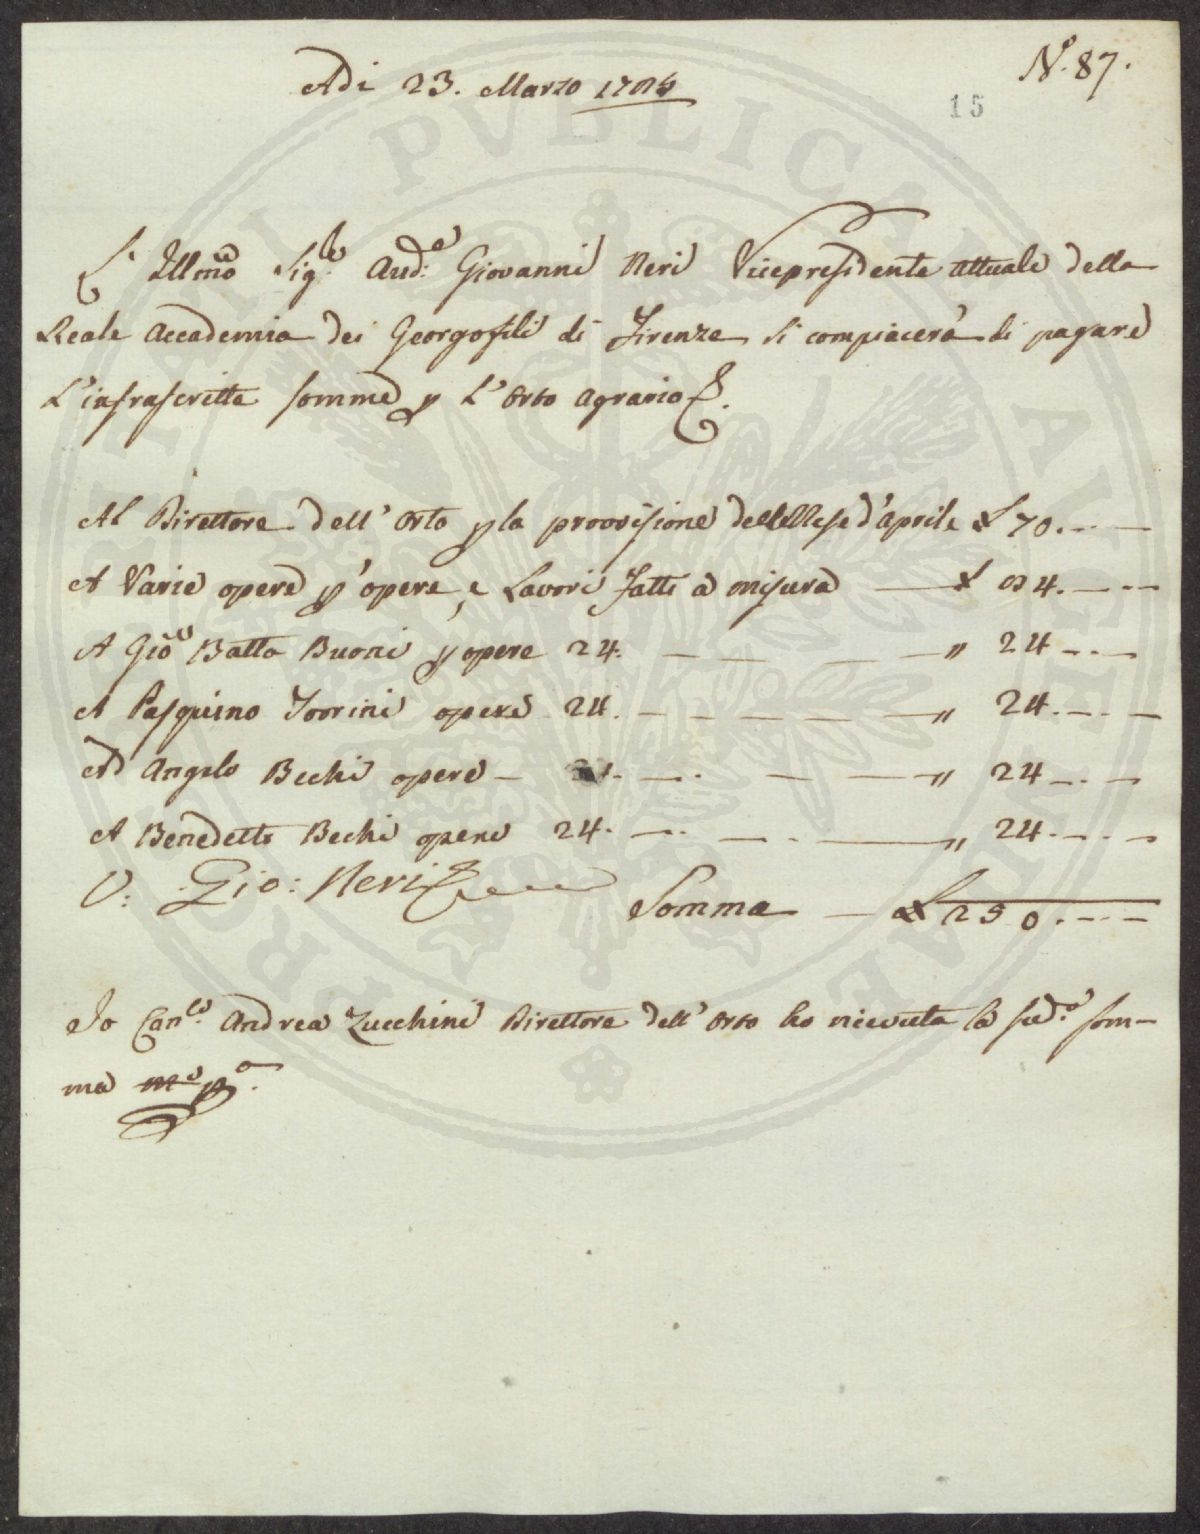 N.° 87.
15
Adi 23. Marzo
L' Illmo Sig.re Aud.e Giovanni Neri Vicepresidente attuale della
Reale Accademia dei Georgofili di Firenze si compiacerà di pagare
L'infrascritte somme p L'Orto Agrario
Al Direttore dell' Orto p la provvisione del Mese d'Aprile £ 70. — —
A Varie opere p opere, e Lavori fatti a misura — £ 84. — —
A Gio Batta Buoni p opere 24. — — — — " 24 — —
A Pasquino Torrini opere 24. — — — — " 24. — —
Ad Angelo Bechi opere — 24. — — — — " 24 — —
A Benedetto Bechi opere 24. — — — — " 24. — —
V: Gio: Neri
Somma — £ 250. — —
Io Can.co Andrea Zucchini Direttore dell' Orto ho ricevuta la sud.a som-
ma m.o p.o